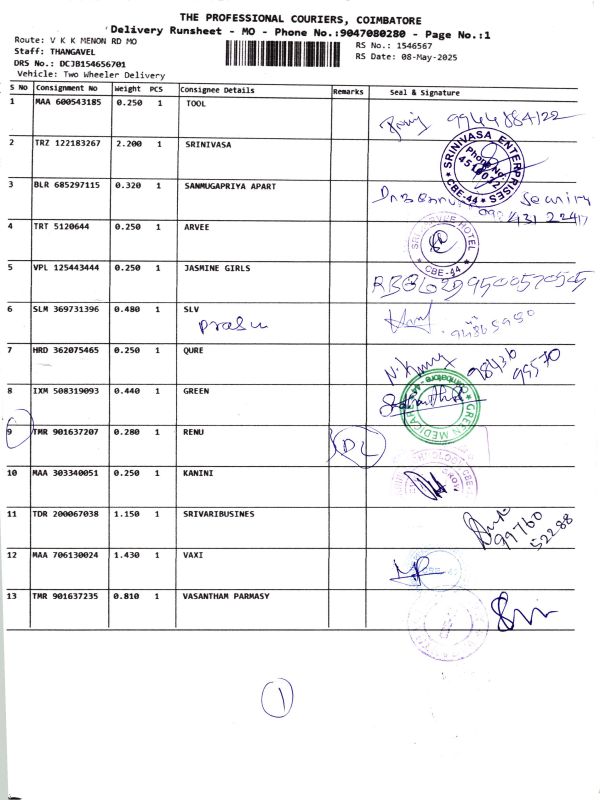 THE PROFESSIONAL COURIERS, COIMBATORE
Delivery Runsheet - MO - Phone No.:9047080280 - Page No.:1
Route: V K K MENON RD MO
RS No.: 1546567
Staff: THANGAVEL
RS Date: 08-May-2025
DRS No.: DCJB154656701
Vehicle: Two Wheeler Delivery
S No Consignment No Weight PCS Consignee Details Remarks Seal & Signature
1 MAA 600543185 0.250 1 TOOL
2 TRZ 122183267 2.200 1 SRINIVASA
SRINIVASA ENTERPRISES
Phone No.
CBE-44
3 BLR 685297115 0.320 1 SANMUGAPRIYA APART
4 TRT 5120644 0.250 1 ARVEE
HOTEL
CBE-44
5 VPL 125443444 0.250 1 JASMINE GIRLS
9500570505
6 SLM 369731396 0.480 1 SLV
Prasu
7 HRD 362075465 0.250 1 QURE
98436
99570
8 IXM 508319093 0.440 1 GREEN
GREEN MEDICAR
9 TMR 901637207 0.280 1 RENU
DL
10 MAA 303340051 0.250 1 KANINI
11 TDR 200067038 1.150 1 SRIVARIBUSINES
99760
52288
12 MAA 706130024 1.430 1 VAXI
13 TMR 901637235 0.810 1 VASANTHAM PARMASY
1